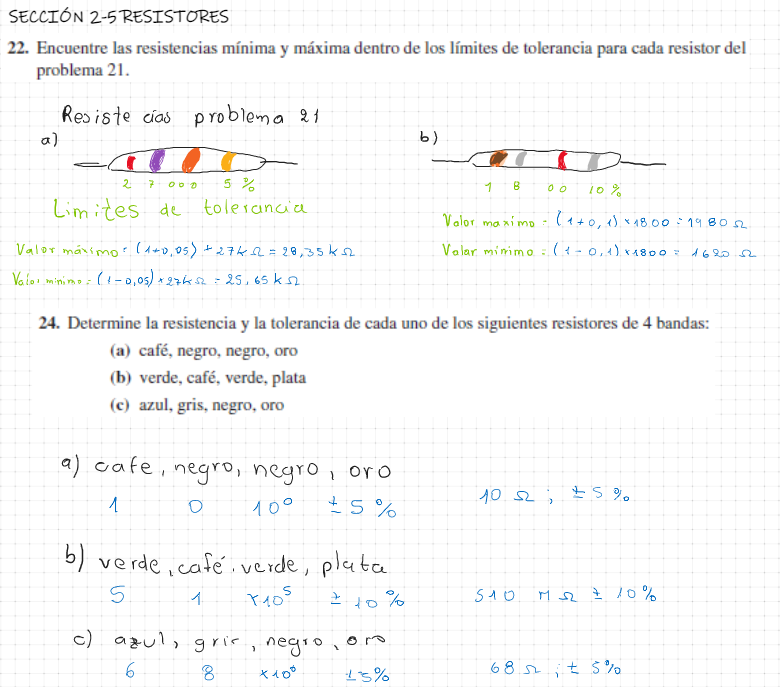 SECCIÓN 2-5 RESISTORES
22. Encuentre las resistencias mínima y máxima dentro de los límites de tolerancia para cada resistor del
problema 21.
Resiste cias problema 21
a)
2 7 000 5 %
Limites de tolerancia
Valor máximo = (1+0,05) * 27k Ω = 28,35 k Ω
Valor minimo = (1-0,05) * 27k Ω = 25,65 k Ω
b)
1 8 00 10 %
Valor maximo = (1+0,1) × 1800 = 1980 Ω
Valor mínimo = (1-0,1) × 1800 = 1620 Ω
24. Determine la resistencia y la tolerancia de cada uno de los siguientes resistores de 4 bandas:
(a) café, negro, negro, oro
(b) verde, café, verde, plata
(c) azul, gris, negro, oro
a) cafe, negro, negro, oro
1 0 10⁰ ± 5 % 10 Ω ; ± 5 %
b) verde, café. verde, plata
5 1 ×10⁵ ± 10 % 510 M Ω ± 10 %
c) azul, gris, negro, oro
6 8 ×10⁰ ± 5% 68 Ω ; ± 5 %